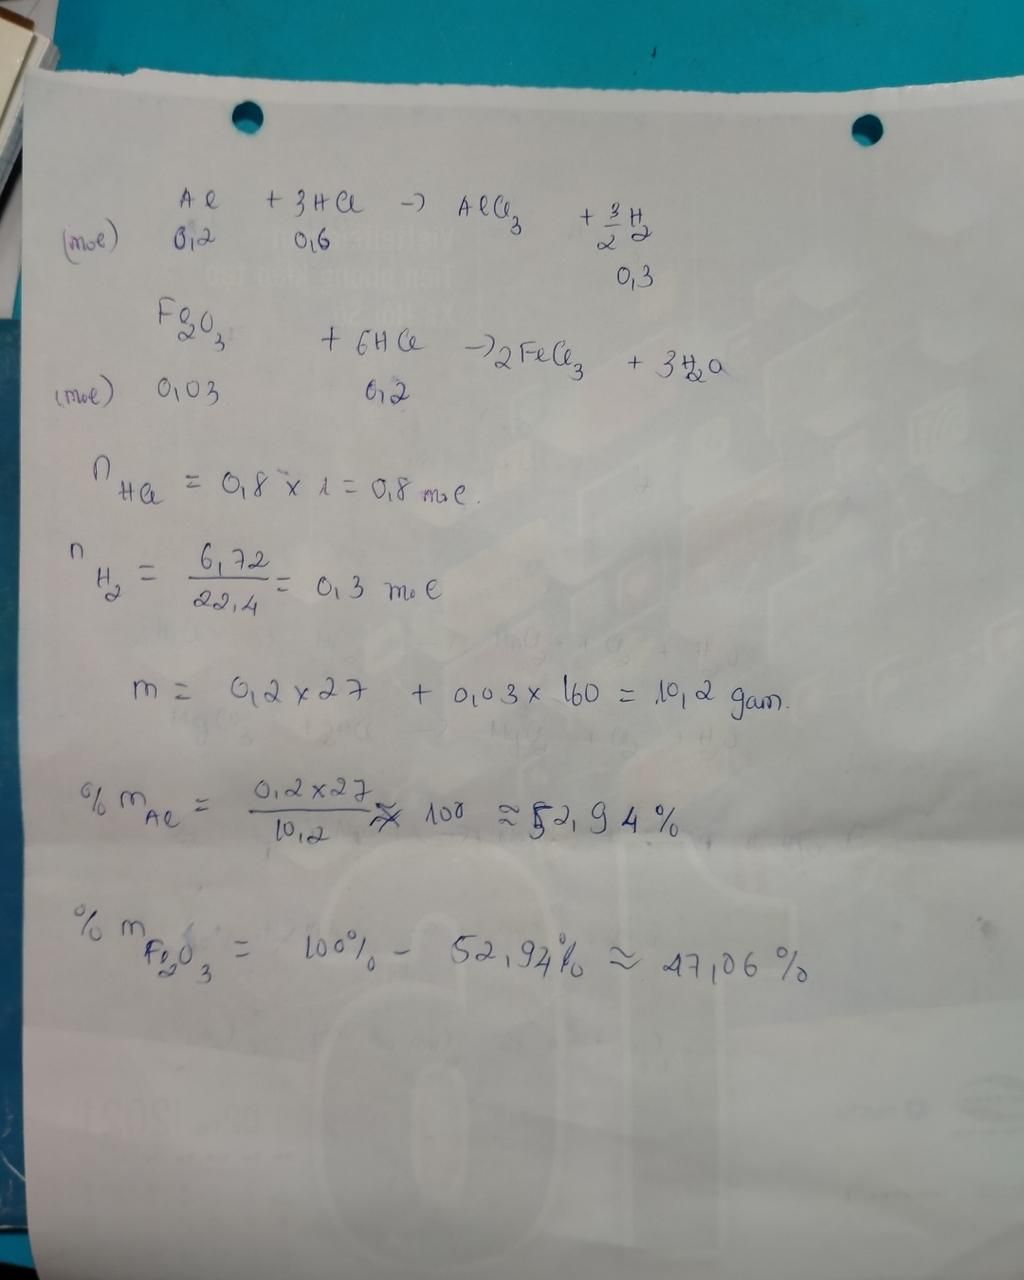 Al + 3HCl → AlCl3 + 3/2 H2
(mol) 0,2 0,6
0,3
Fe2O3 + 6HCl → 2FeCl3 + 3H2O
(mol) 0,03 0,2
nHCl = 0,8 x 1 = 0,8 mol.
nH2 = 6,72/22,4 = 0,3 mol
m = 0,2 x 27 + 0,03 x 160 = 10,2 gam.
% mAl = 0,2 x 27/10,2 x 100 ≈ 52,94 %
% mFe2O3 = 100% - 52,94% ≈ 47,06 %